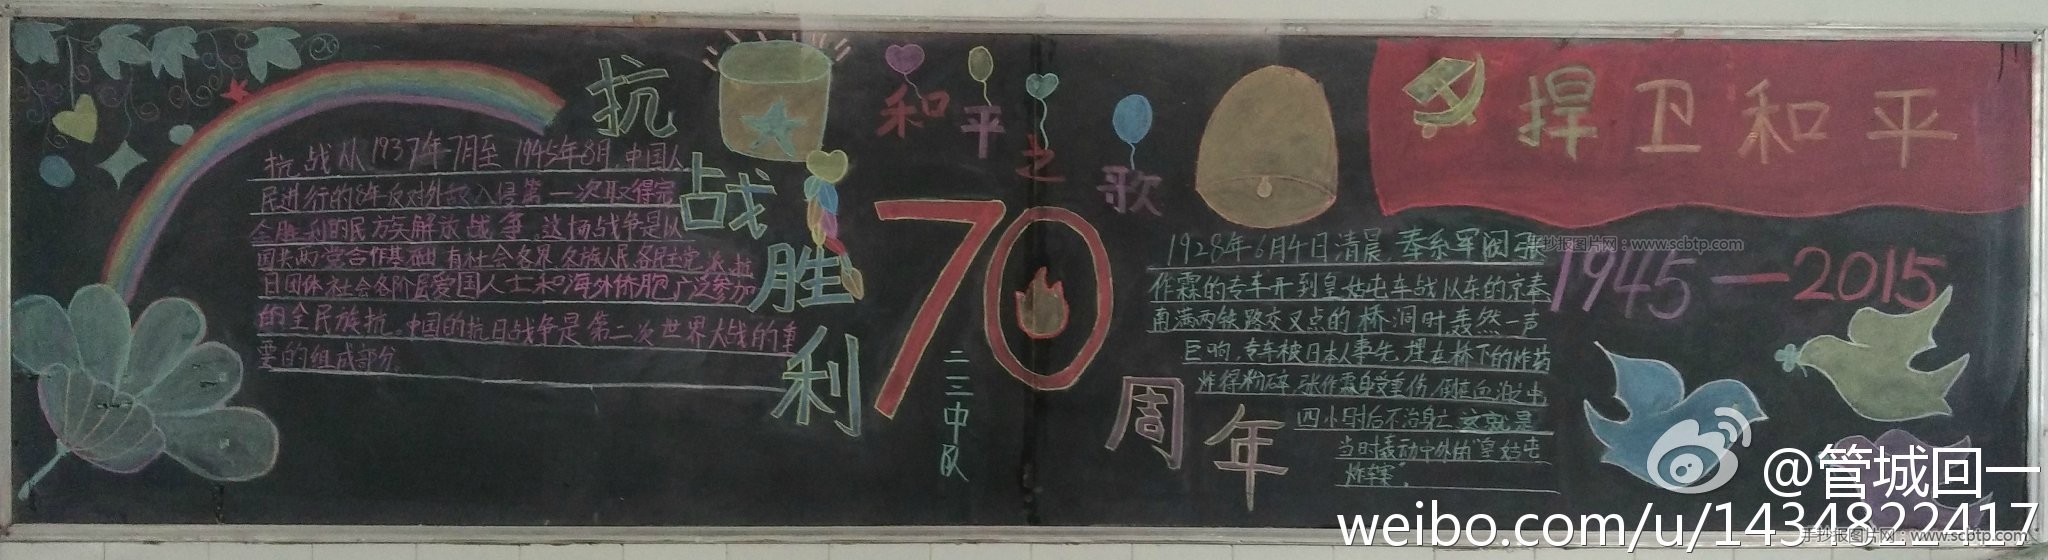 抗战胜利
抗战从1937年7月至1945年8月,中国人
民进行的8年反对外敌入侵第一次取得完
全胜利的民族解放战争,这场战争是以
国共两党合作基础 有社会各界 各族人民 各民主党派、抗
日团体社会各阶层爱国人士和海外侨胞广泛参加
的全民族抗。中国的抗日战争是第二次世界大战的重
要的组成部分。
和平之歌
70
周年
二三中队
捍卫和平
1928年6月4日清晨,奉系军阀张
作霖的专车开到皇姑屯车战以东的京奉
南满两铁路交叉点的桥洞时轰然一声
巨响,专车被日本人事先埋在桥下的炸药
炸得粉碎,张作霖身受重伤,倒在血泊之中
四小时后不治身亡 这就是
当时轰动中外的“皇姑屯
炸车案”。
1945—2015
手抄报图片网:www.scbtp.com
@管城回一
weibo.com/u/1434822417
手抄报图片网:www.scbtp.com